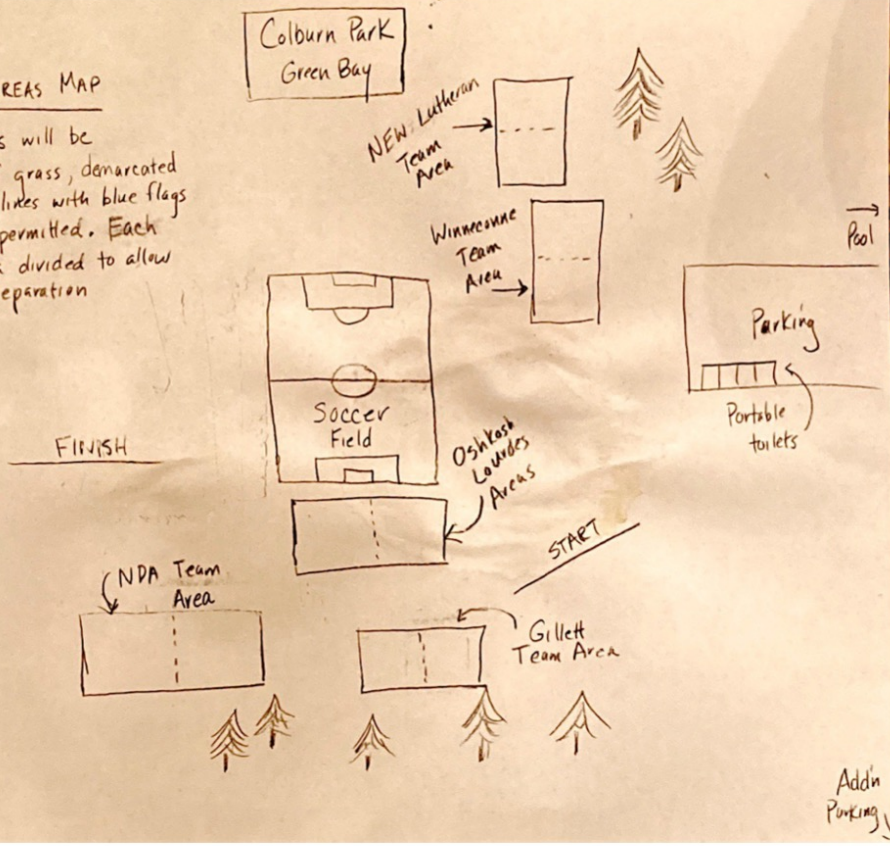 Colburn Park
Green Bay
REAS MAP
s will be
grass, demarcated
lines with blue flags
permitted. Each
divided to allow
eparation
NEW Lutheran
Team
Area
Winneconne
Team
Area
Pool
Parking
Portable
toilets
Soccer
Field
FINISH
Oshkosh
Lourdes
Areas
START
NDA Team
Area
Gillett
Team Area
Add'n
Parking